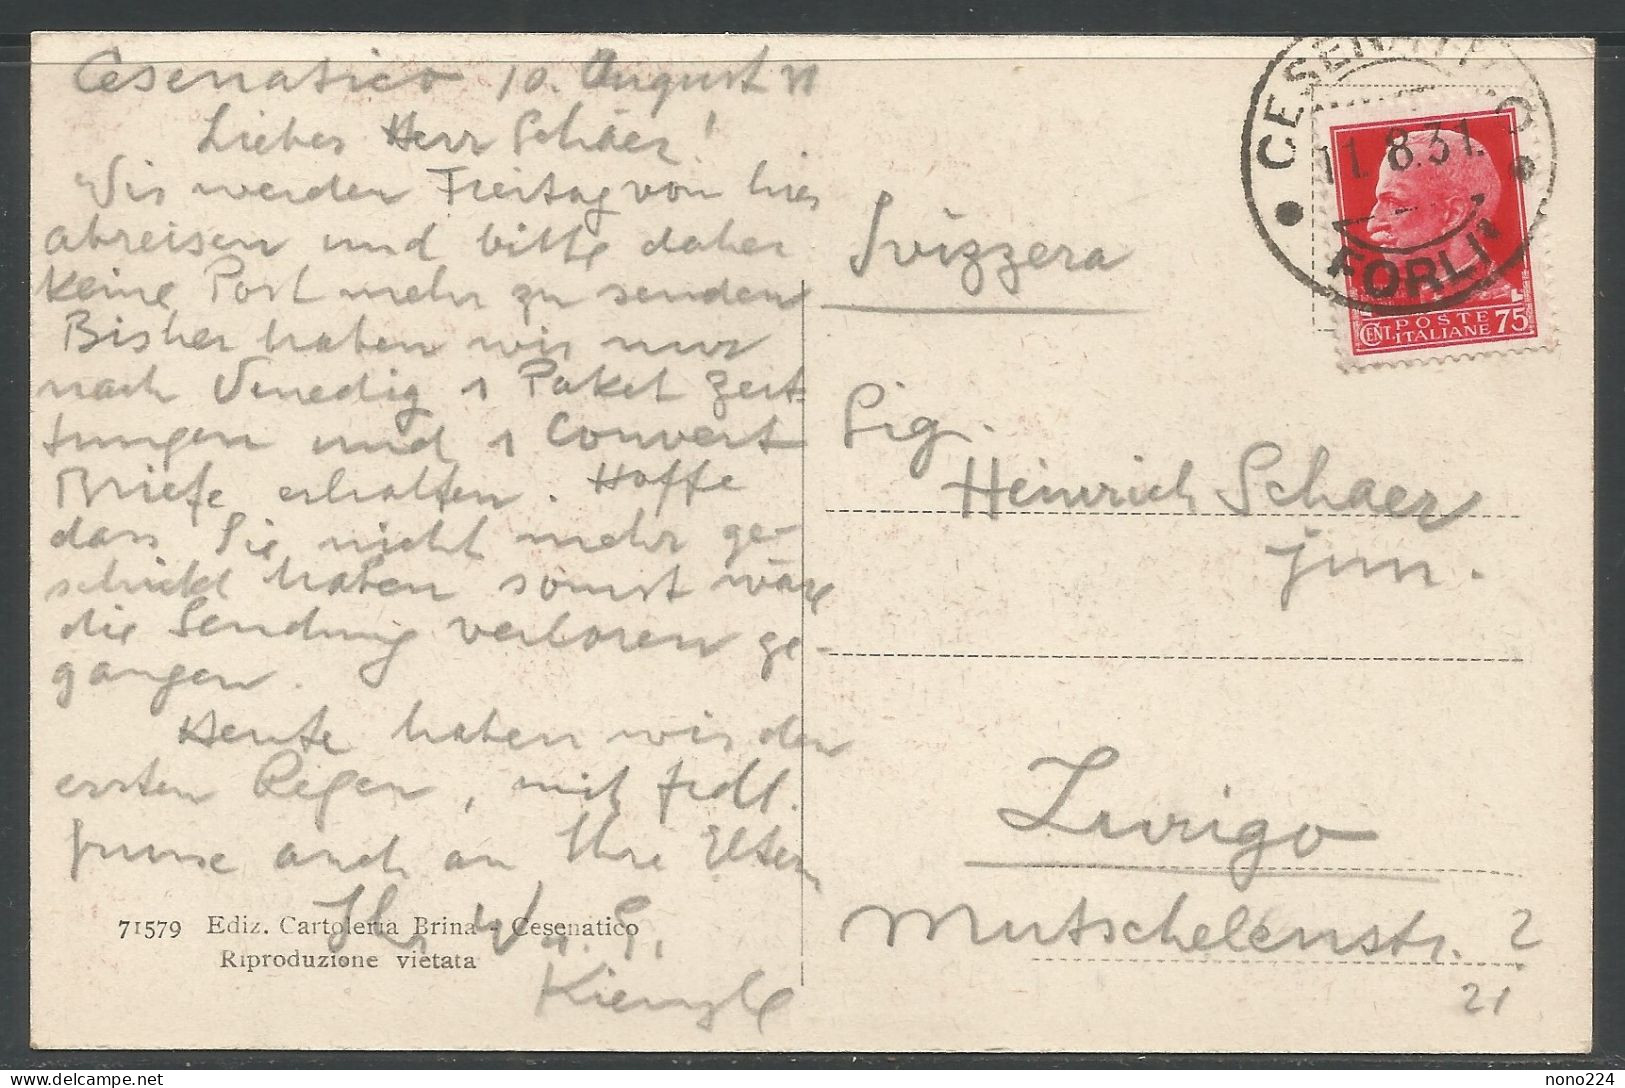 Cesenatico 10. August 31
Liebes Herr Schäer!
Wir werden Freitag von hier
abreisen und bitte daher
keine Post mehr zu senden
Bisher haben wir nur
nach Venedig 1 Paket Zeit-
tungen und 1 Couvert
Briefe erhalten. Hoffe
dass Sie nicht mehr ge-
schickt haben sonst wäre
die Sendung verloren ge-
gangen.
Heute haben wir den
ersten Regen, mit frdl.
Grüsse auch an Ihre Eltern
Ihr W. u. G.
Kienzle
71579 Ediz. Cartoleria Brina - Cesenatico
Riproduzione vietata
CESENATICO
11.8.31.
FORLI
POSTE
CENT. ITALIANE 75
Svizzera
Sig.
Heinrich Schaer
jun.
Zurigo
Mutschellenstr. 2
21
nono224
delcampe.net